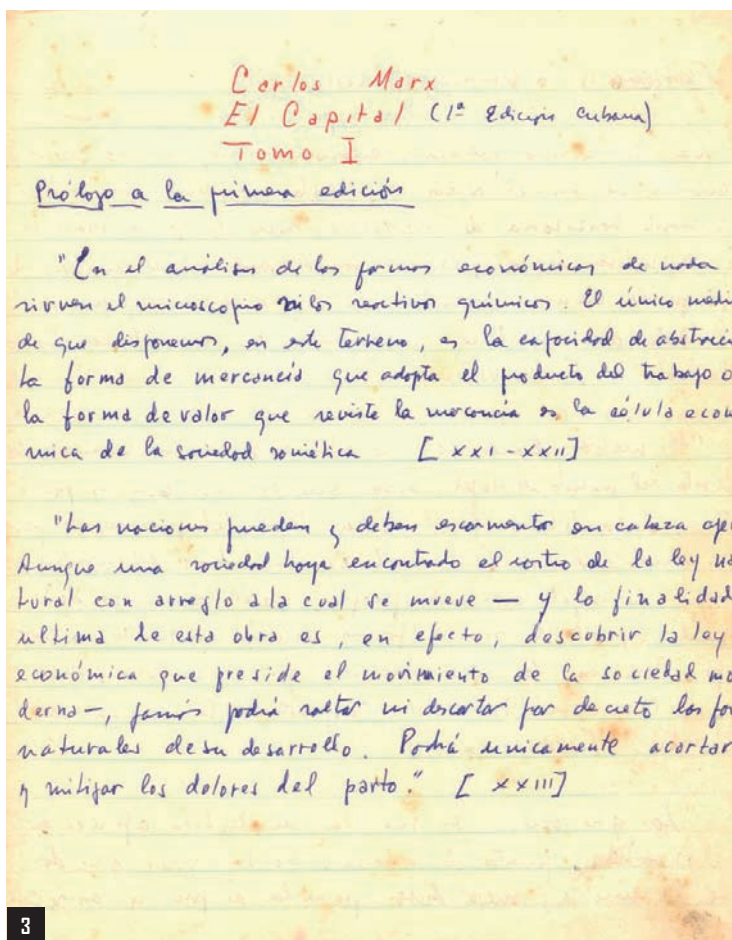 Carlos Marx
El Capital (1ª Edición Cubana)
Tomo I
Prólogo a la primera edición
"En el análisis de las formas económicas de nada
sirven el microscopio ni los reactivos químicos. El único medi
de que disponemos, en este terreno, es la capacidad de abstracci
La forma de mercancía que adopta el producto del trabajo o
la forma de valor que reviste la mercancía es la célula econ
mica de la sociedad soviética [XXI-XXII]
"Las naciones pueden y deben escarmentar en cabeza aje
Aunque una sociedad haya encontrado el rastro de la ley na
tural con arreglo a la cual se mueve — y la finalidad
ultima de esta obra es, en efecto, descobrir la ley
económica que preside el movimiento de la sociedad mo
derna —, jamás podrá saltar ni descartar por decreto las for
naturales de su desarrollo. Podrá unicamente acortar
y mitigar los dolores del parto." [XXIII]
3